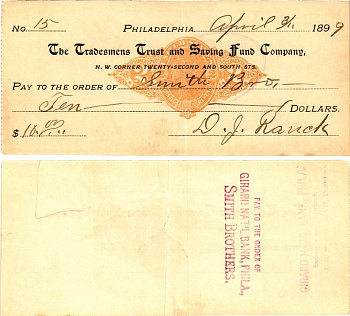 No. 15 Philadelphia April 3/, 1899
The Tradesmens Trust and Saving Fund Company,
N. W. CORNER TWENTY-SECOND AND SOUTH STS.
PAY TO THE ORDER OF Smith Bro.
Ten DOLLARS.
$ 10.00 D. J. Ranck
PAY TO THE ORDER OF
GIRARD NAT'L BANK, PHILA.,
SMITH BROTHERS.